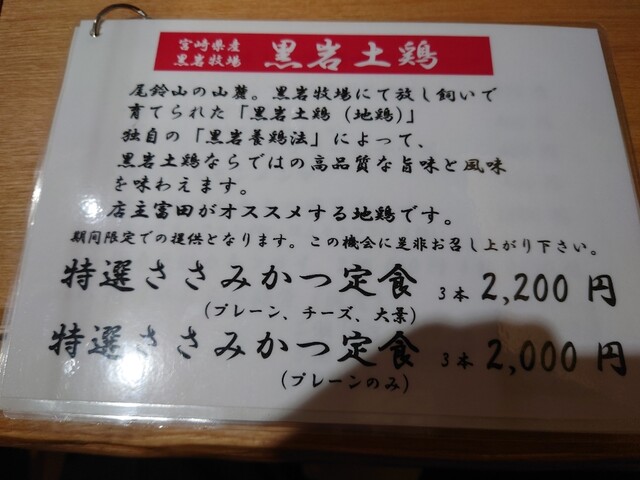 宮崎県産
黒岩牧場
黒岩土鶏
尾鈴山の山麓。黒岩牧場にて放し飼いで
育てられた「黒岩土鶏（地鶏）」
独自の「黒岩養鶏法」によって、
黒岩土鶏ならではの高品質な旨味と風味
を味わえます。
店主富田がオススメする地鶏です。
期間限定での提供となります。この機会に是非お召し上がり下さい。
特選ささみかつ定食 3本 2,200円
（プレーン、チーズ、大葉）
特選ささみかつ定食 3本 2,000円
（プレーンのみ）